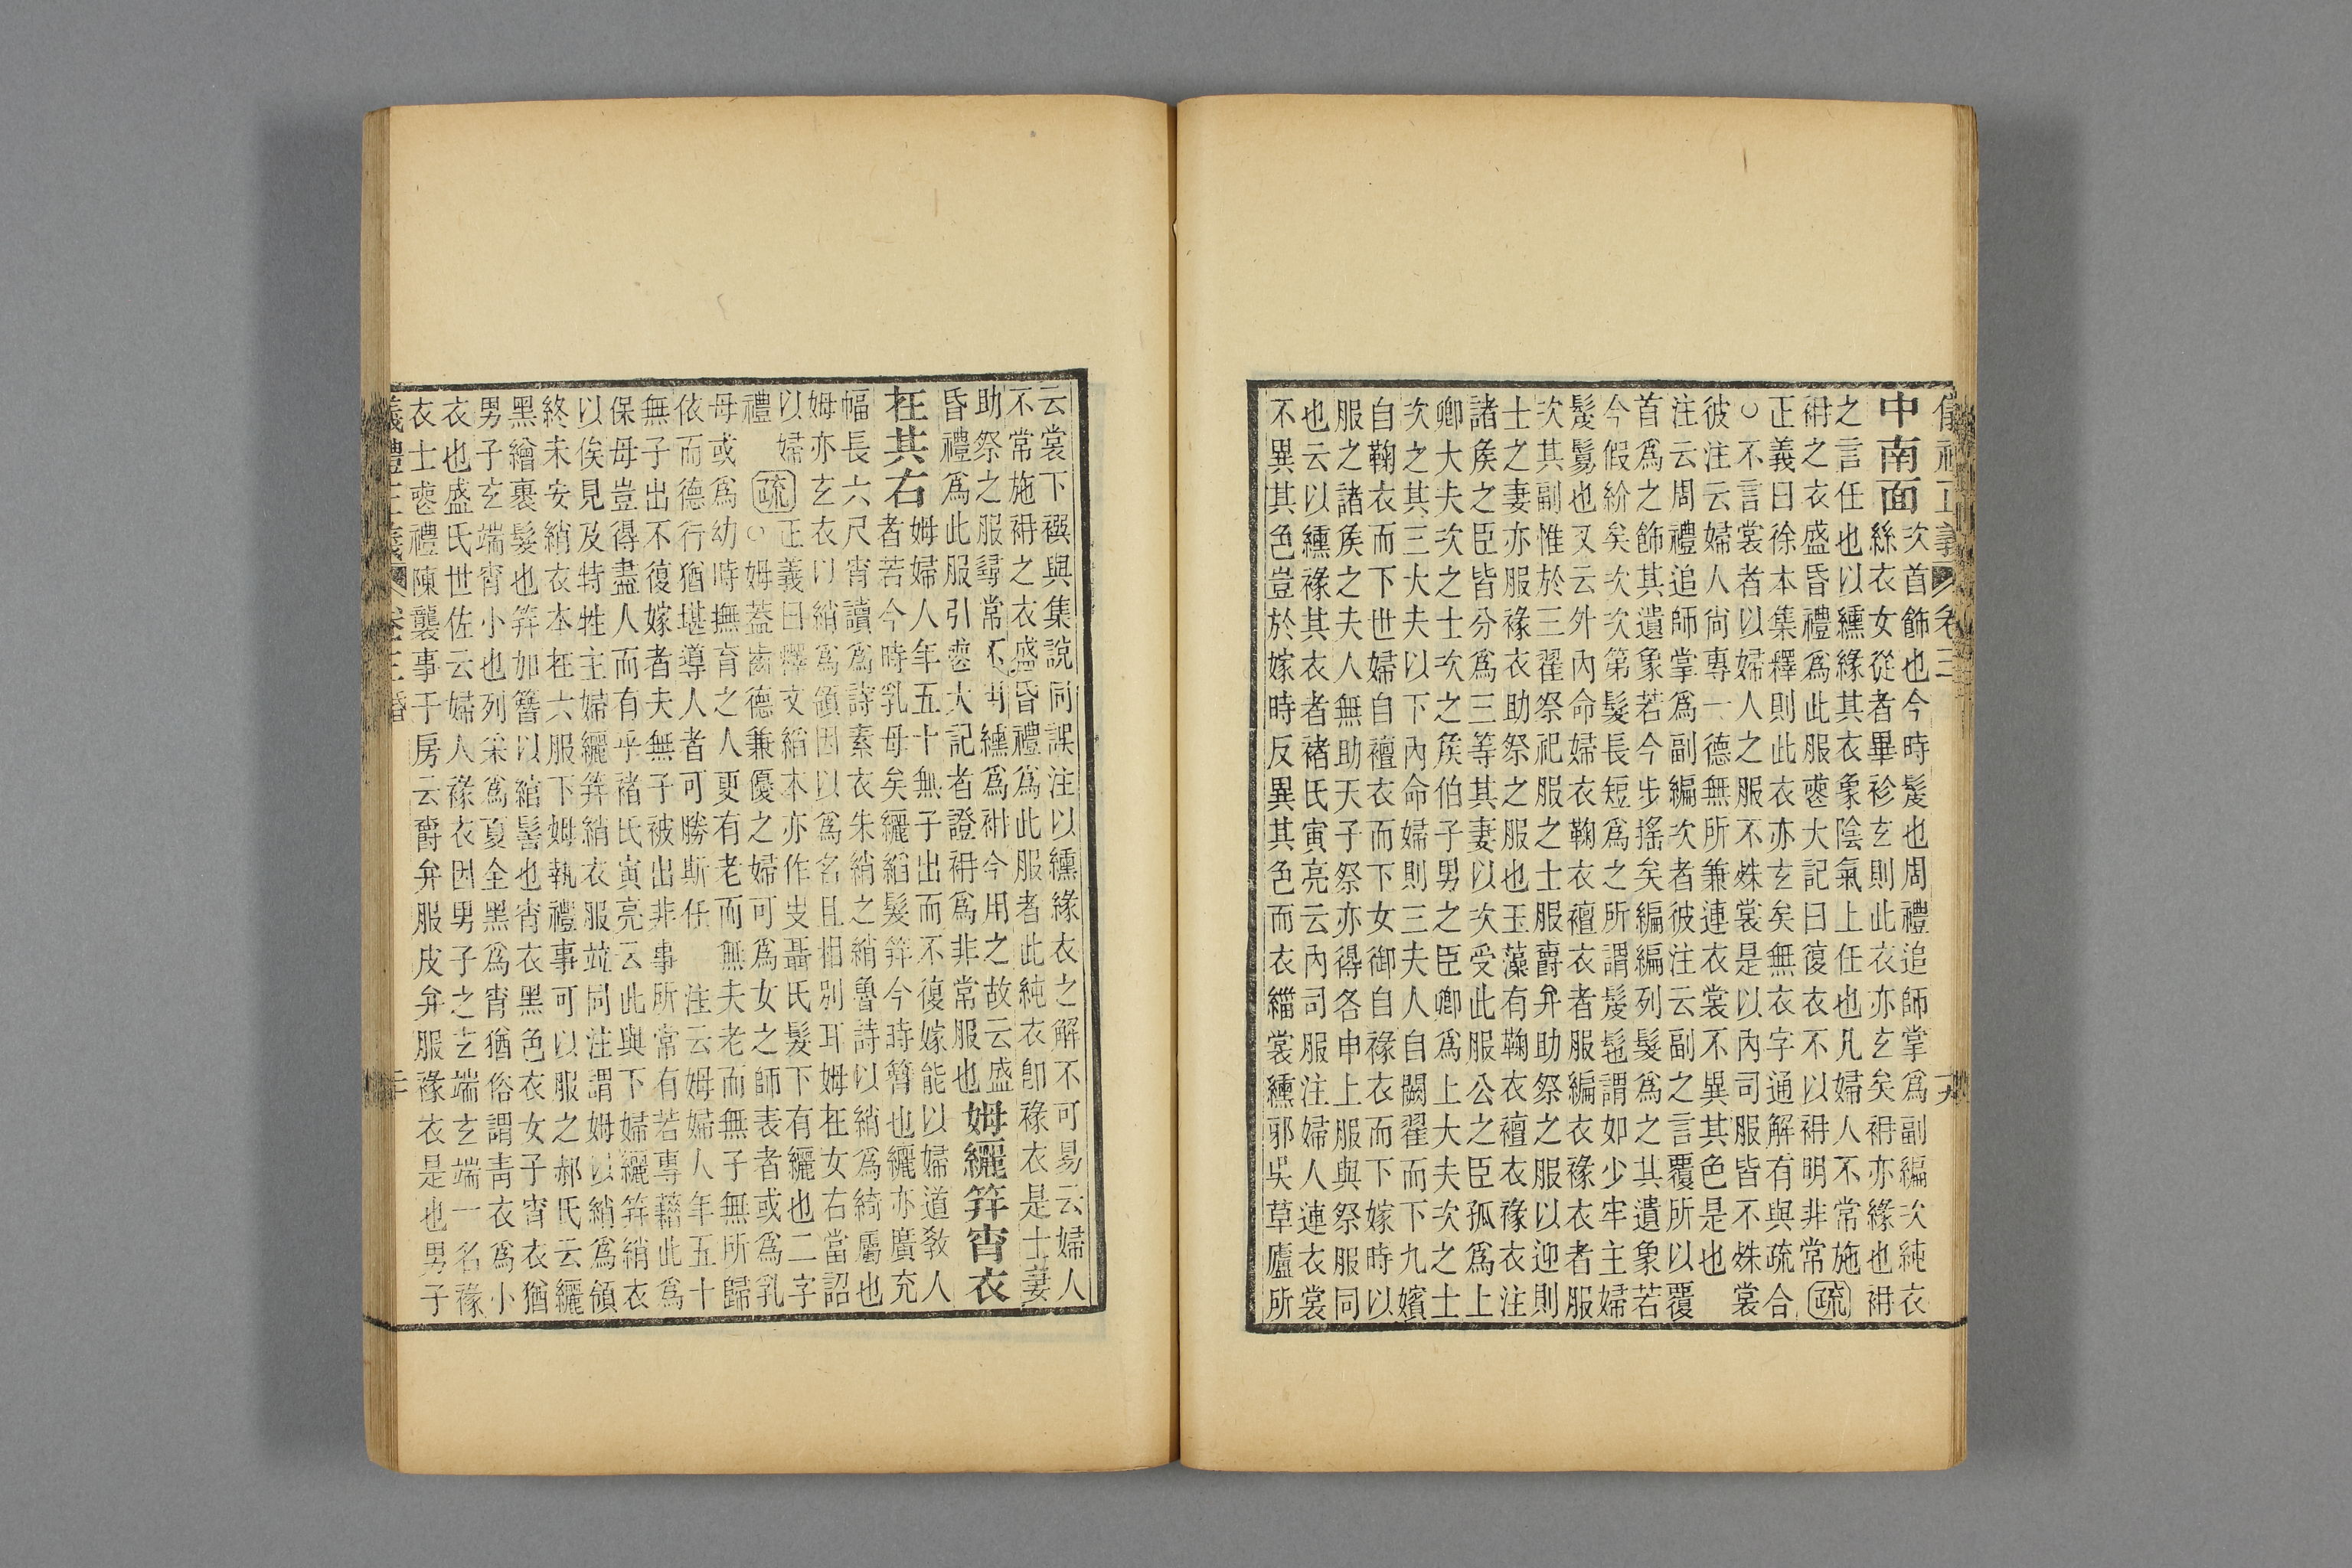 儀禮正義 卷三 十九
中南面 次首飾也今時髲也周禮追師掌為副編次純衣
絲衣女從者畢袗玄則此衣亦玄矣袡亦緣也袡
之言任也以纁緣其衣象陰氣上任也凡婦人不常施
袡之衣盛昏禮爲此服喪大記曰復衣不以袡明非常 疏
正義曰徐本集釋則此衣亦玄矣無衣字通解有與疏合
○不言裳者以婦人之服不殊裳是以內司服皆不殊裳
彼注云婦人尚專一德無所兼連衣裳不異其色是也
注云周禮追師掌爲副編次者彼注云副之言覆所以覆
首爲之飾其遺象若今步搖矣編編列髮爲之其遺象若
今假紒矣次次第髮長短爲之所謂髲髢謂如少牢主婦
髲鬄也又云外內命婦衣鞠衣襢衣者服編衣褖衣者服
次其副惟於三翟祭祀服之士服爵弁助祭之服以迎則
士之妻亦服褖衣助祭之服也玉藻有鞠衣襢衣褖衣注
諸矦之臣皆分爲三等其妻以次受此服公之臣孤爲上
卿大夫次之士次之矦伯子男之臣卿爲上大夫次之士
次之其三大夫以下內命婦則三夫人自闕翟而下九嬪
自鞠衣而下世婦自襢衣而下女御自褖衣而下嫁時以
服之諸矦之夫人無助天子祭亦得各申上服與祭服同
也云以纁褖其衣者褚氏寅亮云內司服注婦人連衣裳
不異其色豈於嫁時反異其色而衣緇裳纁邪吳草廬所
云裳下襈與集說同誤注以纁緣衣之解不可易云婦人
不常施袡之衣盛昏禮爲此服者此純衣卽褖衣是士妻
助祭之服尋常不用纁爲袡今用之故云盛
昏禮爲此服引喪大記者證袡爲非常服也 姆纚笄宵衣
在其右 姆婦人年五十無子出而不復嫁能以婦道敎人
者若今時乳母矣纚縚髮笄今時簪也纚亦廣充
幅長六尺宵讀爲詩素衣朱綃之綃魯詩以綃爲綺屬也
姆亦玄衣以綃爲領因以爲名且相別耳姆在女右當詔
以婦
禮 疏 正義曰釋文縚本亦作㞢聶氏髮下有纚也二字
○姆蓋齒德兼優之婦可爲女之師表者或爲乳
母或爲幼時撫育之人更有老而無夫老而無子無所歸
依而德行猶堪導人者可勝斯任 注云姆婦人年五十
無子出不復嫁者夫無子被出非事所常有若專藉此爲
保母豈得盡人而有乎褚氏寅亮云此與下婦纚笄綃衣
以俟見及特牲主婦纚笄綃衣服竝同注謂姆以綃爲領
終未安綃衣本在六服下姆執禮事可以服之郝氏云纚
黑繒裹髮也笄加簪以綰髻也宵衣黑色衣女子宵衣猶
男子玄端宵小也列采爲夏全黑爲宵猶俗謂靑衣爲小
衣也盛氏世佐云婦人褖衣因男子之玄端玄端一名褖
衣士喪禮陳襲事于房云爵弁服皮弁服褖衣是也男子
義禮正義 卷三 昏 二十